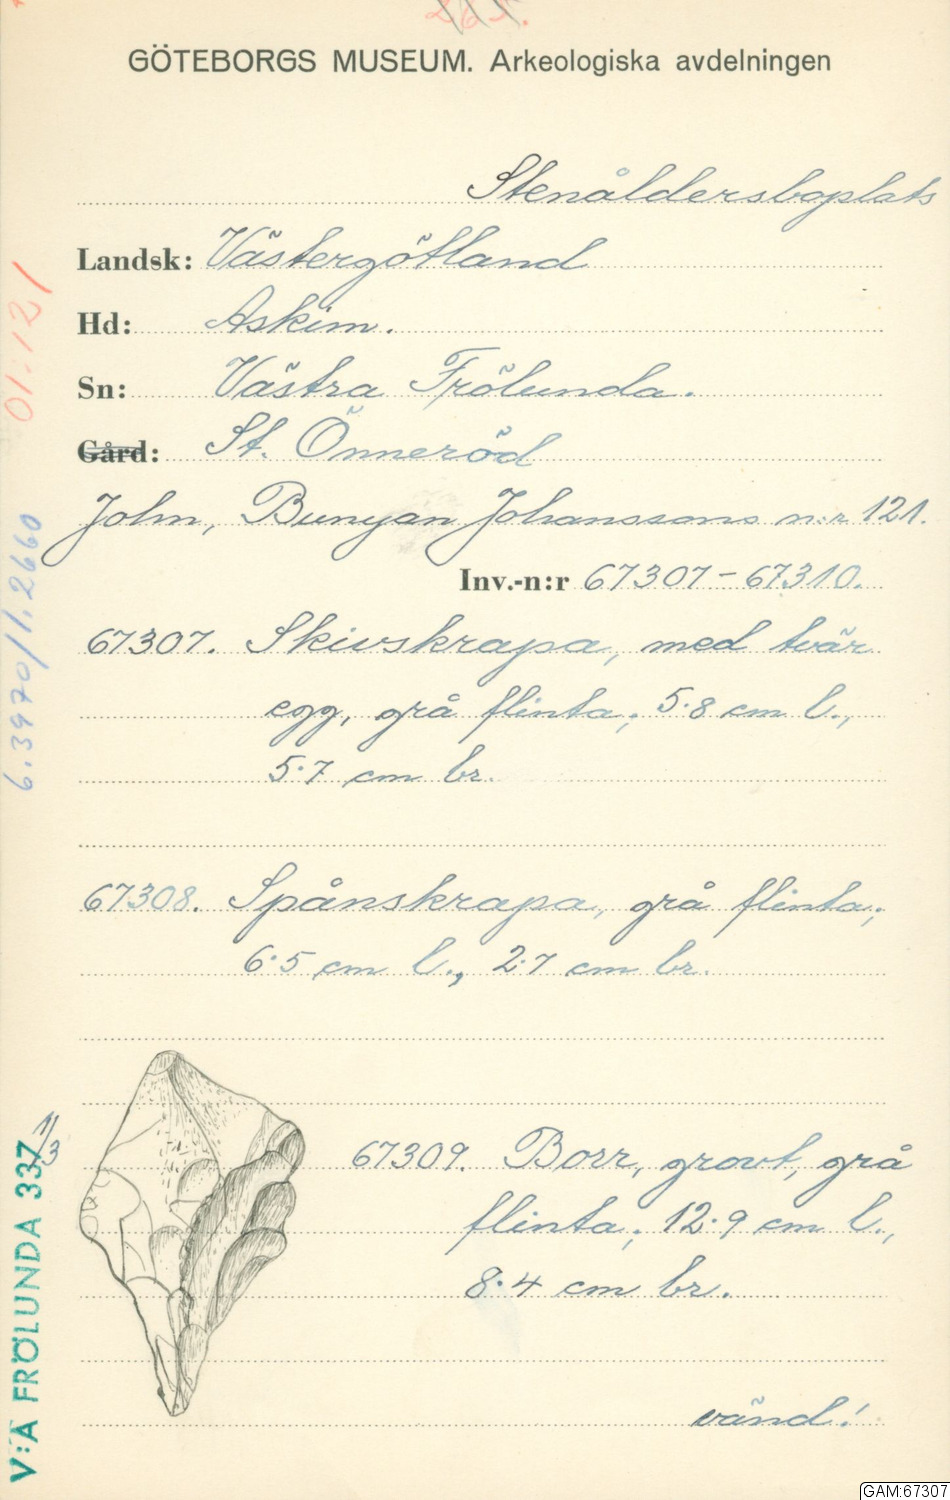 265.
GÖTEBORGS MUSEUM. Arkeologiska avdelningen
Stenåldersboplats
Landsk: Västergötland
Hd: Askim.
Sn: Västra Frölunda.
Gård: St. Önneröd
John, Bunyan Johanssons n:r 121.
Inv.-n:r 67307-67310.
67307. Skivskrapa, med tvär
egg, grå flinta; 5.8 cm l.,
5.7 cm br.
67308. Spånskrapa, grå flinta;
6.5 cm l., 2.7 cm br.
67309. Borr, grovt, grå
flinta; 12.9 cm l.,
8.4 cm br.
vänd!
01.121
6.3970/1.2660
V:A FRÖLUNDA 337 1/3
GAM:67307